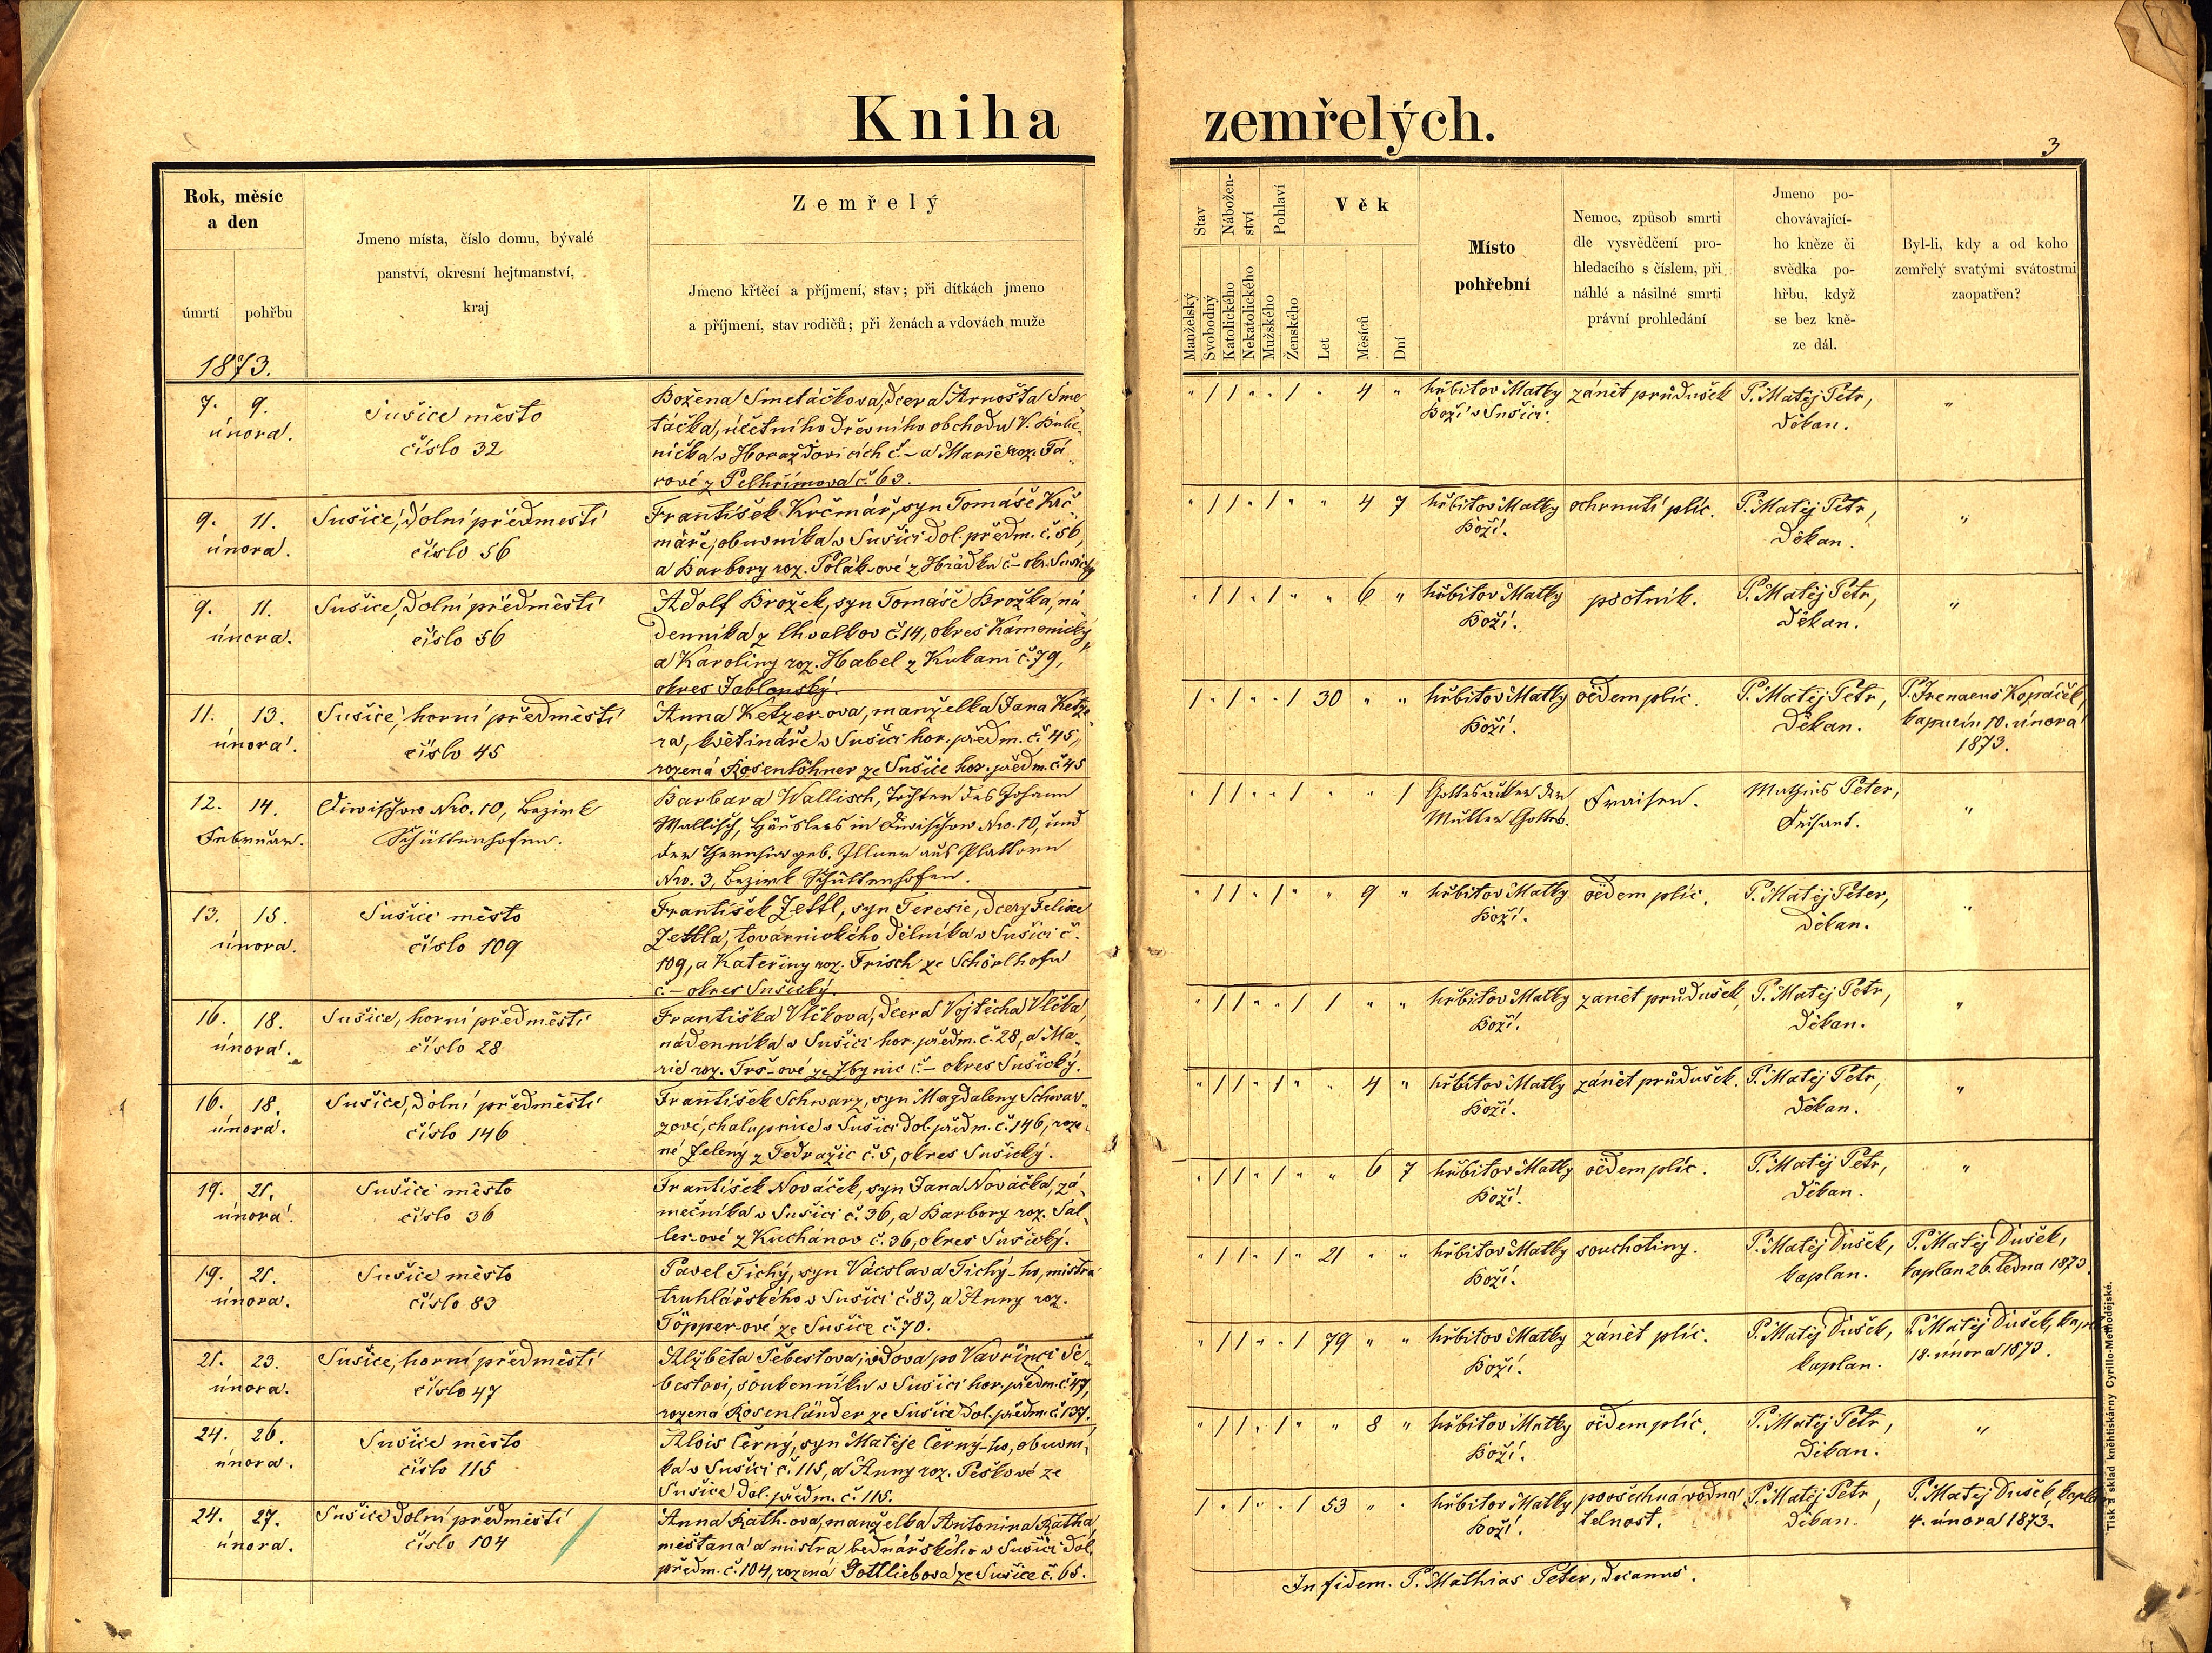 Kniha zemřelých.
3
Rok, měsíc
a den
úmrtí
pohřbu
1873.
Jmeno místa, číslo domu, bývalé
panství, okresní hejtmanství,
kraj
Zemřelý
Jmeno křtěcí a příjmení, stav; při dítkách jmeno
a příjmení, stav rodičů; při ženách a vdovách muže
Stav
Nábožen-
ství
Pohlaví
Věk
Manželský
Svobodný
Katolického
Nekatolického
Mužského
Ženského
Let
Měsíců
Dní
Místo
pohřební
Nemoc, způsob smrti
dle vysvědčení pro-
hledacího s číslem, při
náhlé a násilné smrti
právní prohledání
Jmeno po-
chovávající-
ho kněze či
svědka po-
hřbu, když
se bez kně-
ze dál.
Byl-li, kdy a od koho
zemřelý svatými svátostmi
zaopatřen?
7. 9.
února.
Sušice město
číslo 32
Božena Smetáčkova, dcera Arnošta Sme
táčka, účetního dřevního obchodu V. Bube-
níčka v Horažďovicích č. – a Marie roz. Fá
rové z Pelhřimova č. 63.
" / / " " / " 4 "
hřbitov Matky
Boží v Sušici.
zánět průdušek
P. Matěj Petr,
Děkan.
"
9. 11.
února.
Sušice, dolní předmestí
číslo 56
František Krčmář, syn Tomáše Krč-
máře, obuvníka v Sušici dol. předm. č. 56,
a Barbory roz. Polák-ové z Hrádku č – okr. Sušický
" / / " / " " 4 7
hřbitov Matky
Boží.
ochrnutí plic.
P. Matěj Petr,
Děkan.
"
9. 11.
února.
Sušice, dolní předměstí
číslo 56
Adolf Brožek, syn Tomáše Brožka, ná
denníka z Chvalkov č. 14, okres Kamenický,
a Karoliny roz. Habel z Kukani č. 79,
okres Jablonský.
" / / " / " " 6 "
hřbitov Matky
Boží.
psotník.
P. Matěj Petr,
Děkan.
"
11. 13.
února.
Sušice, horní předměstí
číslo 45
Anna Ketzer-ova, manželka Jana Ketze
ra, květináře v Sušici hor. předm. č. 45,
rozená Rosenlöhner ze Sušice hor. předm. č 45
/ " / " " / 30 " "
hřbitov Matky
Boží.
oëdem plic.
P. Matěj Petr,
Děkan.
P. Irenaeus Kopáček,
kapucín 10. února
1873.
12. 14.
Februar.
Diwischow Nro. 10, Bezirk
Schüttenhofen.
Barbara Wallisch, Tochter des Johann
Wallisch, Häuslers in Diwischow Nro. 10, und
der Theresia geb. Illner aus Plattorn
Nro. 3, Bezirk Schüttenhofen.
" / / " " / " " 1
Gottesacker der
Mutter Gottes.
Fraisen.
Mathias Peter,
Dechant.
"
13. 15.
února.
Sušice město
číslo 109
František Zettl, syn Teresie, dcery Felixe
Zettla, továrnického dělníka v Sušici č.
109, a Kateřiny roz. Frisch ze Schörlhofu
č. – okres Sušický.
" / / " / " " 9 "
hřbitov Matky
Boží.
oëdem plic.
P. Matěj Peter,
Děkan.
"
16. 18.
února.
Sušice, horní předměstí
číslo 28
Františka Vlčkova, dcera Vojtěcha Vlčka,
nádenníka v Sušici hor. předm. č. 28, a Ma-
rie roz. Trš-ové ze Zbynic č. – okres Sušický.
" / / " " / 1 " "
hřbitov Matky
Boží.
zanět průdušek
P. Matěj Petr,
Děkan.
"
16. 18.
února.
Sušice, dolní předměstí
číslo 146
František Schwarz, syn Magdaleny Schwar-
zové, chalupnice v Sušici dol. předm. č. 146, roze-
né Zelený z Tedražic č. 5, okres Sušický.
" / / " / " " 4 "
hřbitov Matky
Boží.
zánět průdušek.
P. Matěj Petr,
Děkan.
"
19. 21.
února.
Sušice město
číslo 36
František Nováček, syn Jana Nováčka, zá-
mečníka v Sušici č. 36, a Barbory roz. Sal-
ler-ové z Kuchánov č. 36, okres Sušický.
" / / " / " " 6 7
hřbitov Matky
Boží.
oëdem plic.
P. Matěj Petr,
Děkan.
"
19. 21.
února.
Sušice město
číslo 83
Pavel Tichý, syn Václava Tichý-ho, mistra
truhlářského v Sušici č. 83, a Anny roz.
Töpper-ové ze Sušice č. 70.
" / / " / " 21 " "
hřbitov Matky
Boží.
souchotiny.
P. Matěj Dušek,
kaplan.
P. Matěj Dušek,
kaplan 26. ledna 1873.
21. 23.
února.
Sušice, horní předměstí
číslo 47
Alžběta Šebestova, vdova po Vavřinci Še-
bestovi, soukenníku v Sušici hor. předm. č. 47,
rozená Rosenländer ze Sušice dol. předm. č 137.
" / / " " / 79 " "
hřbitov Matky
Boží.
zánět plic.
P. Matěj Dušek,
kaplan.
P. Matěj Dušek,
18. února 1873.
24. 26.
února.
Sušice město
číslo 115
Alois Černý, syn Matěje Černý-ho, obuvní-
ka v Sušici č. 115, a Anny roz. Peškové ze
Sušice dol. předm. č. 115.
" / / " / " " 8 "
hřbitov Matky
Boží.
oëdem plic.
P. Matěj Petr,
Děkan.
"
24. 27.
února.
Sušice dolní předměstí
číslo 104
Anna Rath-ova, manželka Antonína Ratha
měšťana a mistra bednářského v Sušici dol.
předm. č. 104, rozená Gottliebova ze Sušice č. 65.
/ " / " " / 53 " "
hřbitov Matky
Boží.
povšechná vodna
telnost.
P. Matěj Petr,
Děkan.
P. Matěj Dušek,
4. února 1873.
In fidem. P. Mathias Peter, decanus.
Tisk a sklad kněhtiskárny Cyrillo-Methodějské.